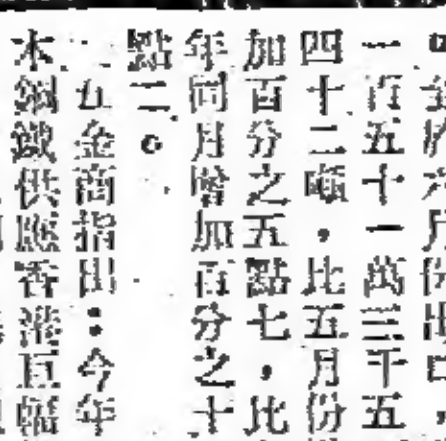 一百五十一萬三千五
四十二噸，比五月份
加百分之五點七，比
年同月增加百分之十
點二。
五金商指出：今年
本鋼鐵供應香港巨幅